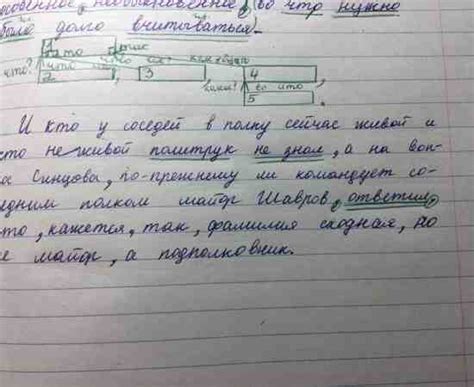 необыкновенное, (во что нужно
было долго вчитываться).
1
что так
что? что
2 3 4
какие? во что
5
И кто у соседей в полку сейчас живой и
кто не живой политрук не знал, а на воп-
Синцова, по-прежнему ли командует со-
седним полком майор Шавров, ответил,
что, кажется, так, фамилия сходная, но
не майор, а подполковник.